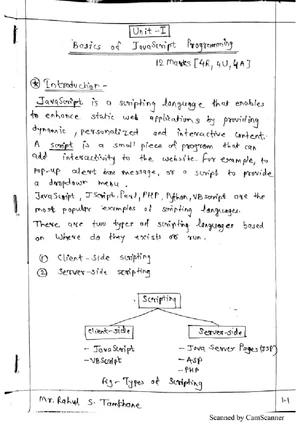 Unit-I
Basics of JavaScript Programming
12 Marks [4R, 4U, 4A]
* Introduction -
JavaScript is a scripting language that enables
to enhance static web applications by providing
dynamic, personalized and interactive content.
A script is a small piece of program that can
add interactivity to the website. For example, to
pop-up alert box message, or a script to provide
a dropdown menu.
JavaScript, JScript, Perl, PHP, Python, VBscript are the
most popular examples of scripting languages.
There are two types of scripting languages based
on where do they exists or run.
① Client-side scripting
② Server-side scripting
Scripting
Client-side
Server-side
- JavaScript
- VBScript
- Java Server Pages (JSP)
- ASP
- PHP
Fig- Types of Scripting
Mr. Rahul S. Tamkhane
1-1
Scanned by CamScanner